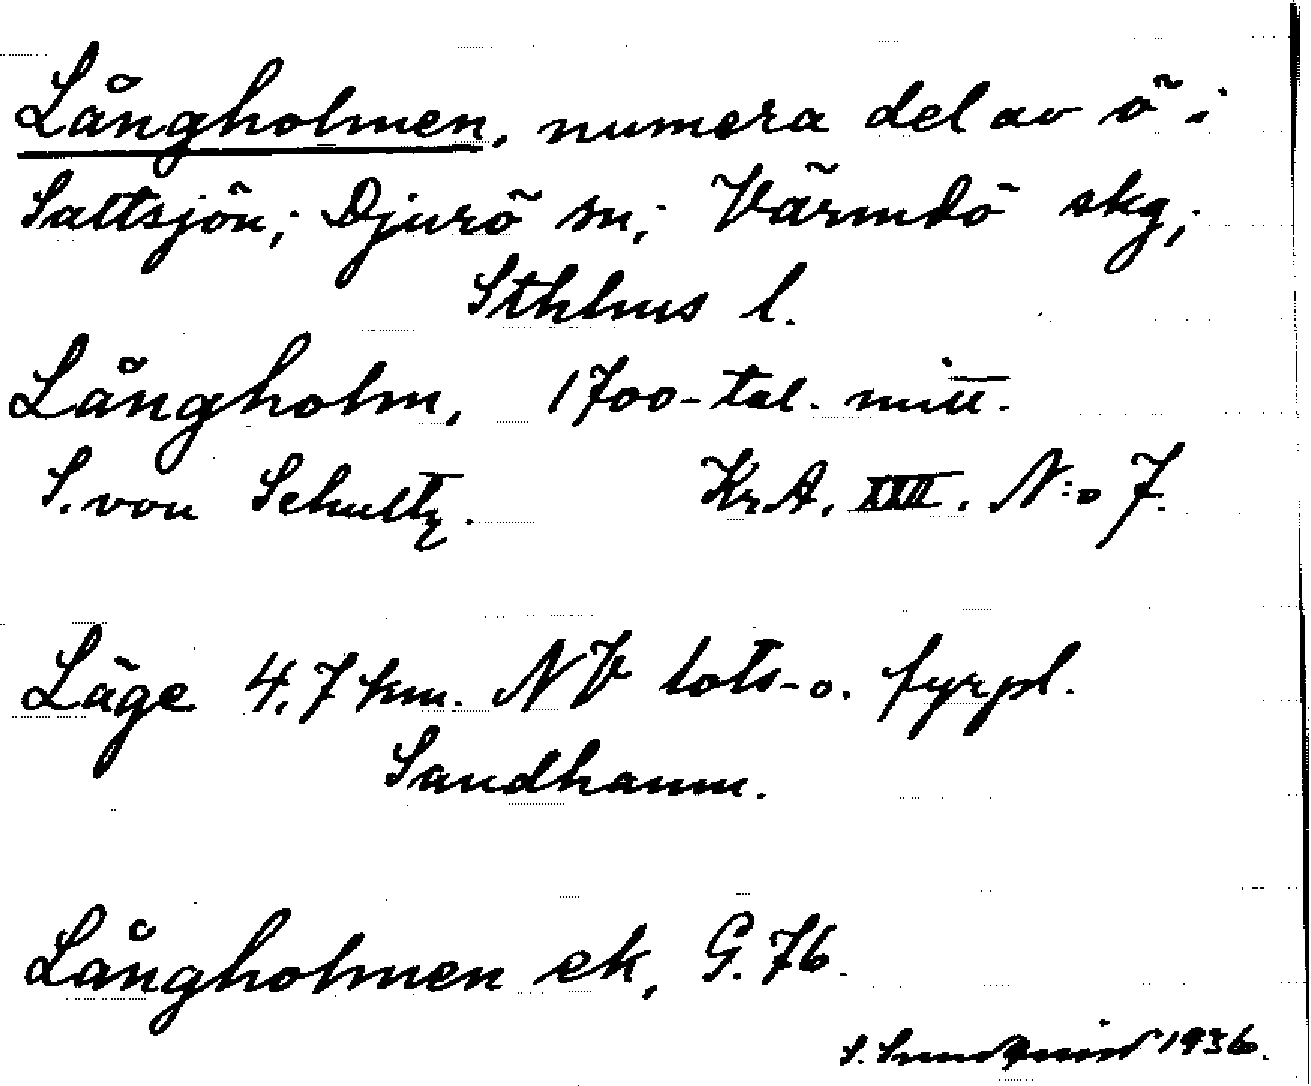 Långholmen, numera del av ö i
Saltsjön; Djurö sn; Värmdö skg;
Sthlms l.
Långholm, 1700-tal. mitt.
S. von Schultz. Kr.A. XXII. N:o 7.
Läge 4,7 km. NV lots- o. fyrpl.
Sandhamn.
Långholmen ek, G. 76.
S. Sundqvist 1936.